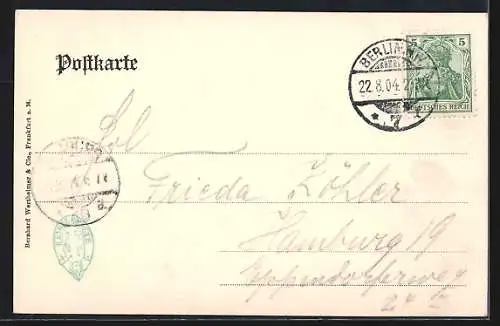 Postkarte
BERLIN. N.W.
22.8.04.
* 7
5 5
DEUTSCHES REICH
Bernhard Wertheimer & Cie., Frankfurt a. M.
Sol
Frieda Köhler
Hamburg 19
Eppendorferweg